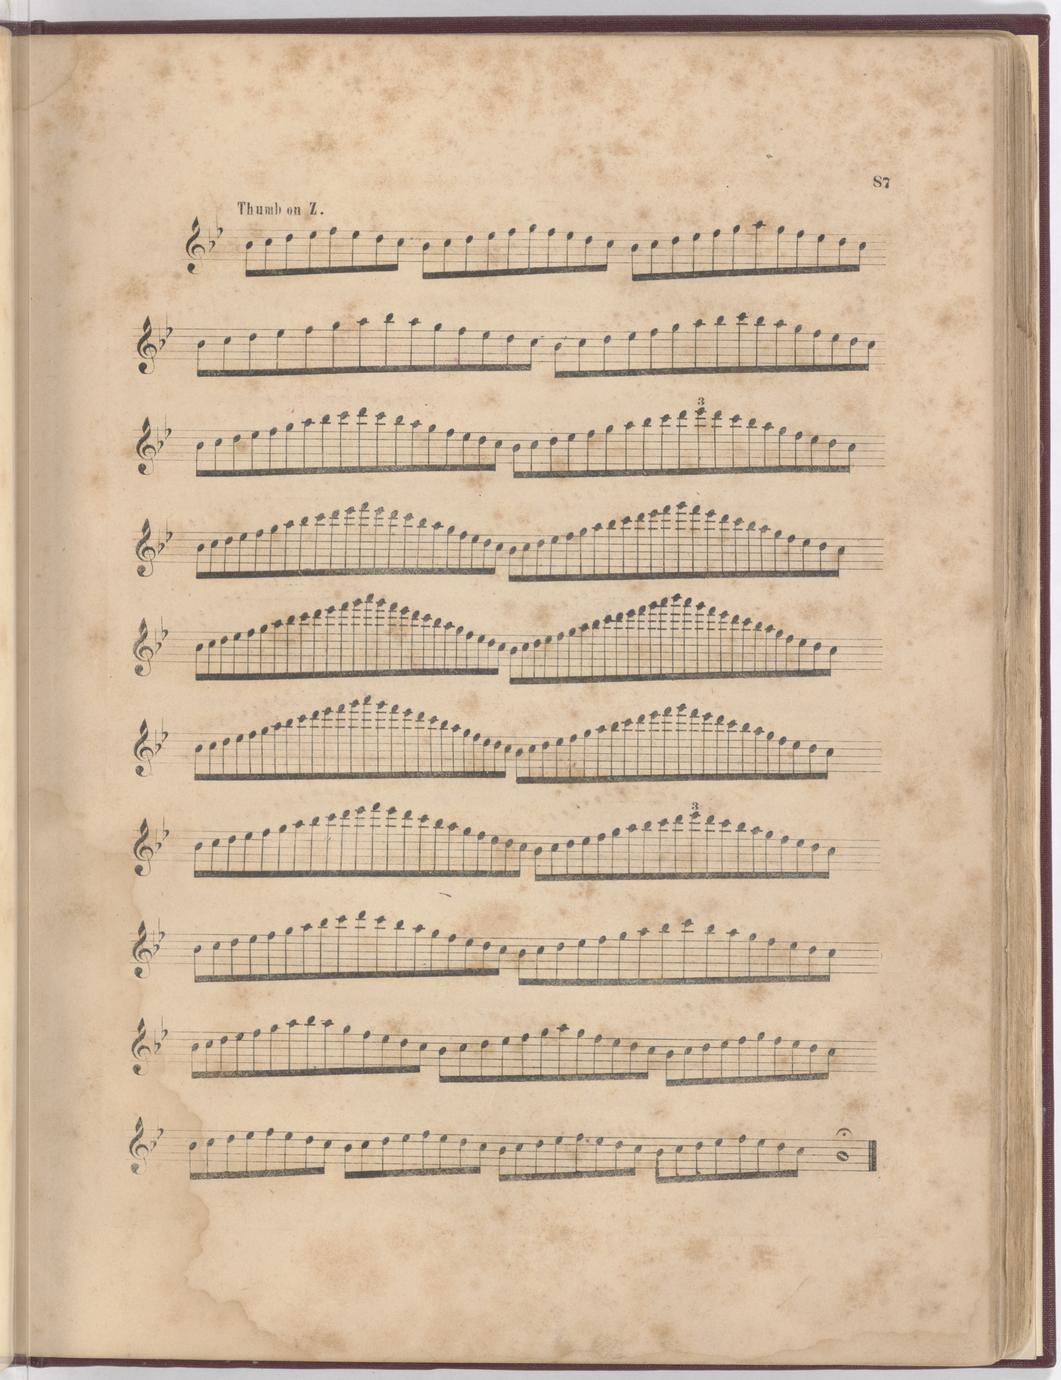 87
Thumb on Z.
3
3